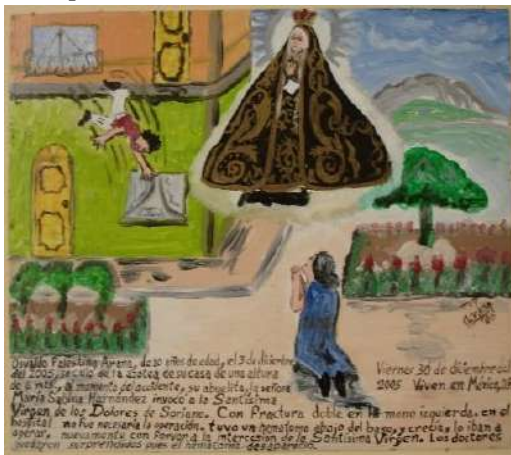 Osvaldo Palestino Arena, de 10 años de edad, el 3 de diciembre
del 2005, se callo de la azotea de su casa de una altura
de 6 mts, al momento del accidente, su abuelita, la señora
María Sabina Hernández invoco a la Santísima
Virgen de los Dolores de Soriano. Con Fractura doble en la mano izquierda, en el
hospital no fue necesaria la operación, tuvo un hematoma abajo del bazo, y crecia, lo iban a
operar, nuevamente con fervor a la intercesion de la Santísima Virgen. Los doctores
quedaron sorprendidos pues el hematoma desaparecio.
Viernes 30 de diciembre del
2005 Viven en México,